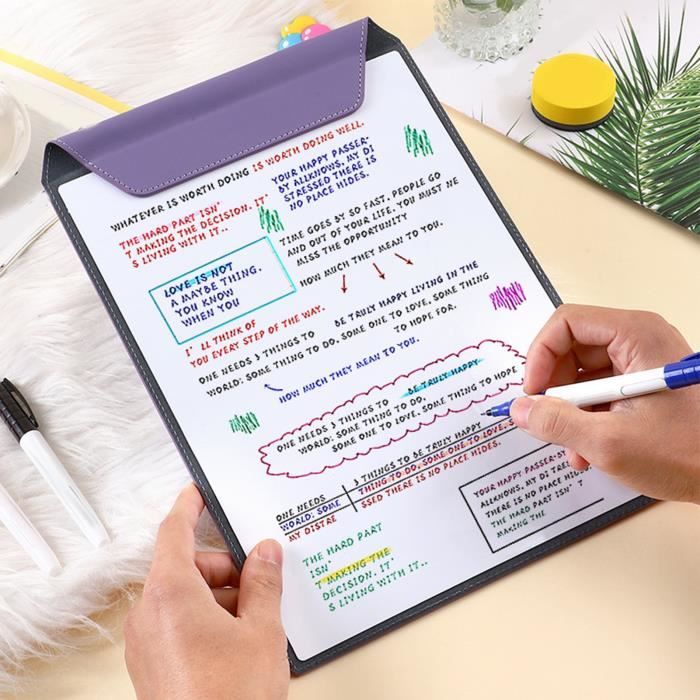 WHATEVER IS WORTH DOING IS WORTH DOING WELL.
THE HARD PART ISN'
T MAKING THE DECISION. IT'
S LIVING WITH IT..
YOUR HAPPY PASSER-
BY ALLKNOWS, MY DI
STRESSED THERE IS
NO PLACE HIDES.
TIME GOES BY SO FAST, PEOPLE GO
AND OUT OF YOUR LIFE. YOU MUST NE
MISS THE OPPORTUNITY
HOW MUCH THEY MEAN TO YOU.
LOVE IS NOT
A MAYBE THING.
YOU KNOW
WHEN YOU
I' LL THINK OF
YOU EVERY STEP OF THE WAY.
ONE NEEDS 3 THINGS TO BE TRULY HAPPY LIVING IN THE
WORLD: SOME THING TO DO, SOME ONE TO LOVE, SOME THING
TO HOPE FOR.
HOW MUCH THEY MEAN TO YOU.
ONE NEEDS 3 THINGS TO BE TRULY HAPPY
WORLD: SOME THING TO DO,
SOME ONE TO LOVE, SOME THING TO HOPE
ONE NEEDS 3 THINGS TO BE TRULY HAPPY
WORLD: SOME THING TO DO, SOME ONE TO LOVE, S
MY DISTRE SSED THERE IS NO PLACE HIDES.
YOUR HAPPY PASSER-
ALLKNOWS, MY DI
THERE IS NO PLACE
THE HARD PART ISN' T
MAKING THE
THE HARD PART
ISN'
T MAKING THE
DECISION. IT'
S LIVING WITH IT..